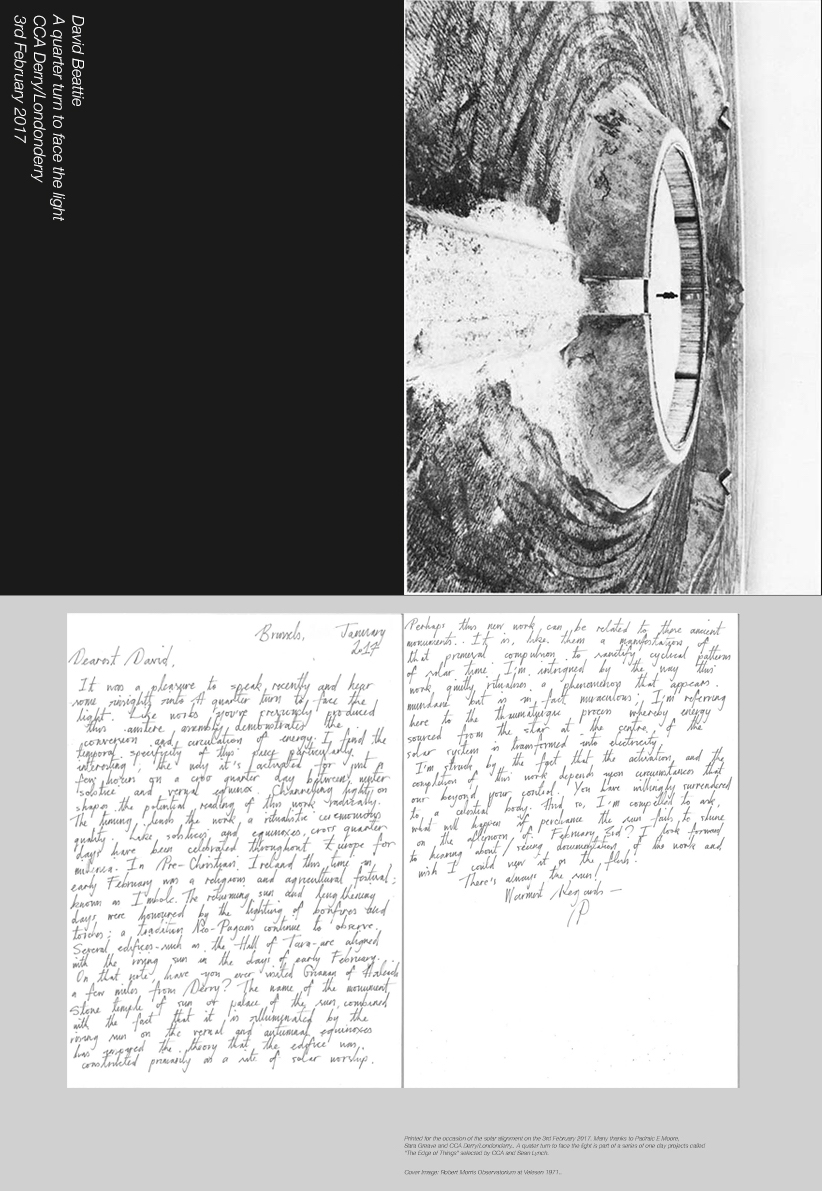 David Beattie
A quarter turn to face the light
CCA Derry/Londonderry
3rd February 2017
Brussels, January
2017
Dearest David,
It was a pleasure to speak recently and hear
some insights into A quarter turn to face the
light. Like works you've previously produced
this austere assembly demonstrates the
conversion and circulation of energy. I find the
temporal specificity of this piece particularly
interesting; the way it's activated for just a
few hours on a cross quarter day between winter
solstice and vernal equinox. Channeling light, on
shapes the potential reading of this work radically.
The timing lends the work a ritualistic ceremonious
quality. Like solstices and equinoxes, cross quarter
days have been celebrated throughout Europe for
millenia. In Pre-Christian Ireland this time in
early February was a religious and agricultural festival;
known as Imbolc. The returning sun and lengthening
days were honoured by the lighting of bonfires and
torches; a tradition Neo-Pagans continue to observe.
Several edifices-such as the Hall of Tara-are aligned
with the rising sun in the days of early February.
On that note, have you ever visited Grianan of Aileach
a few miles from Derry? The name of the monument
Stone temple of sun or palace of the sun, combined
with the fact that it is illuminated by the
rising sun on the vernal and autumnal equinoxes
has inspired the theory that the edifice was
constructed primarily as a site of solar worship.
Perhaps this new work can be related to these ancient
monuments. It is, like them a manifestation of
that primeval compulsion to sanctify cyclical patterns
of solar time. I'm intrigued by the way this
work quietly ritualises a phenomenon that appears
mundane but is in fact miraculous; I'm referring
here to the thaumaturgic process whereby energy
sourced from the star at the centre of the
solar system is transformed into electricity.
I'm struck by the fact that the activation and the
completion of this work depends upon circumstances that
our beyond your control. You have willingly surrendered
to a celestial body. And so, I'm compelled to ask,
what will happen if perchance the sun fails to shine
on the afternoon of February 3rd? I look forward
to hearing about/seeing documentation of the work and
wish I could view it in the flesh.
There's always the sun!
Warmest Regards —
Printed for the occasion of the solar alignment on the 3rd February 2017. Many thanks to Padraic E Moore,
Sara Greavu and CCA Derry/Londonderry.. A quater turn to face the light is part of a series of one day projects called
"The Edge of Things" selected by CCA and Sean Lynch.
Cover Image: Robert Morris Observatorium at Velesen 1971..